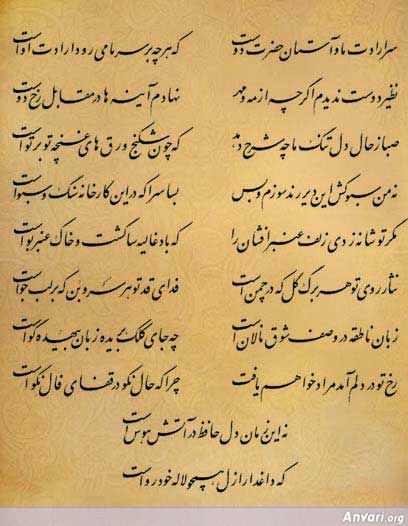 سر ارادت ما و آستان حضرت دوست که هر چه بر سر ما می رود ارادت اوست
نظیر دوست ندیدم اگر چه از مه و مهر نهادم آینه ها در مقابل رخ دوست
صبا ز حال دل تنگ ما چه شرح دهد که چون شکنج ورق های غنچه تو بر توست
نه من سبوکش این دیر رندسوزم و بس بسا سرا که در این کارخانه سنگ و سبوست
مگر تو شانه زدی زلف عنبر افشان را که باد غالیه سا گشت و خاک عنبر بوست
نثار روی تو هر برگ گل که در چمن است فدای قد تو هر سرو بن که بر لب جوست
زبان ناطقه در وصف شوق نالان است چه جای کلک بریده زبان بیهده گوست
رخ تو در دلم آمد مراد خواهم یافت چرا که حال نکو در قفای فال نکوست
نه این زمان دل حافظ در آتش هوس است
که داغدار ازل همچو لاله خودروست
Anvari.org